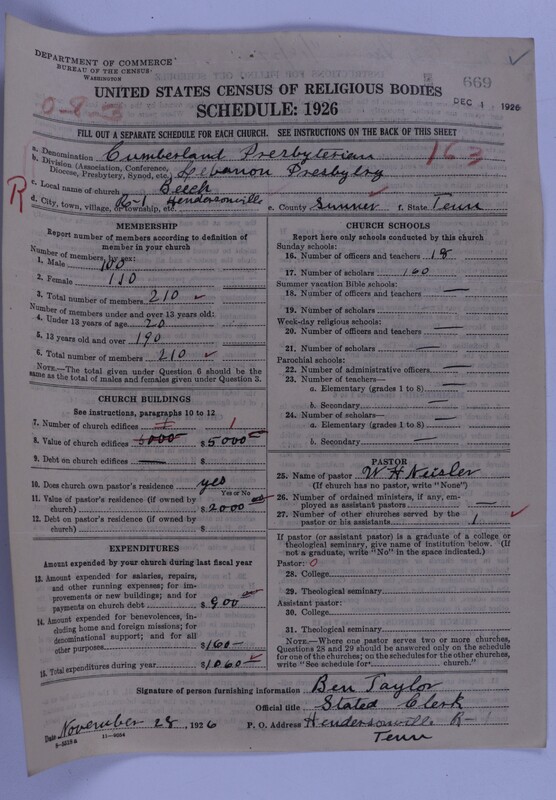 DEPARTMENT OF COMMERCE
BUREAU OF THE CENSUS
WASHINGTON
669
0-8-3
UNITED STATES CENSUS OF RELIGIOUS BODIES
DEC 4 1926
SCHEDULE: 1926
FILL OUT A SEPARATE SCHEDULE FOR EACH CHURCH. SEE INSTRUCTIONS ON THE BACK OF THIS SHEET
a. Denomination Cumberland Presbyterian 163
b. Division (Association, Conference, Diocese, Presbytery, Synod, etc.) Lebanon Presbytry
R
c. Local name of church Beech
d. City, town, village, or township, etc. R-1 Hendersonville e. County Sumner f. State Tenn
MEMBERSHIP
Report number of members according to definition of member in your church
Number of members, by sex:
1. Male 100
2. Female 110
3. Total number of members 210
Number of members under and over 13 years old:
4. Under 13 years of age 20
5. 13 years old and over 190
6. Total number of members 210
NOTE.—The total given under Question 6 should be the same as the total of males and females given under Question 3.
CHURCH BUILDINGS
See instructions, paragraphs 10 to 12
7. Number of church edifices 1
8. Value of church edifices 5000 $5000
9. Debt on church edifices — $
10. Does church own pastor's residence yes
Yes or No
11. Value of pastor's residence (if owned by church) $2000
12. Debt on pastor's residence (if owned by church) $
EXPENDITURES
Amount expended by your church during last fiscal year
13. Amount expended for salaries, repairs, and other running expenses; for improvements or new buildings; and for payments on church debt $900
14. Amount expended for benevolences, including home and foreign missions; for denominational support; and for all other purposes $160—
15. Total expenditures during year $1060
CHURCH SCHOOLS
Report here only schools conducted by this church
Sunday schools:
16. Number of officers and teachers 18
17. Number of scholars 160
Summer vacation Bible schools:
18. Number of officers and teachers —
19. Number of scholars
Week-day religious schools:
20. Number of officers and teachers —
21. Number of scholars —
Parochial schools:
22. Number of administrative officers —
23. Number of teachers—
a. Elementary (grades 1 to 8) —
b. Secondary —
24. Number of scholars—
a. Elementary (grades 1 to 8) —
b. Secondary —
PASTOR
25. Name of pastor W H Neisler
(If church has no pastor, write "None")
26. Number of ordained ministers, if any, employed as assistant pastors —
27. Number of other churches served by the pastor or his assistants 1
If pastor (or assistant pastor) is a graduate of a college or theological seminary, give name of institution below. (If not a graduate, write "No" in the space indicated.)
Pastor: 0
28. College
29. Theological seminary
Assistant pastor:
30. College
31. Theological seminary
NOTE.—Where one pastor serves two or more churches, Questions 28 and 29 should be answered only on the schedule for one of the churches; on the schedules for the other churches, write "See schedule for church."
Signature of person furnishing information Ben Taylor
Official title Stated Clerk
Date November 28, 1926 P. O. Address Hendersonville R-1
Tenn
11—9054